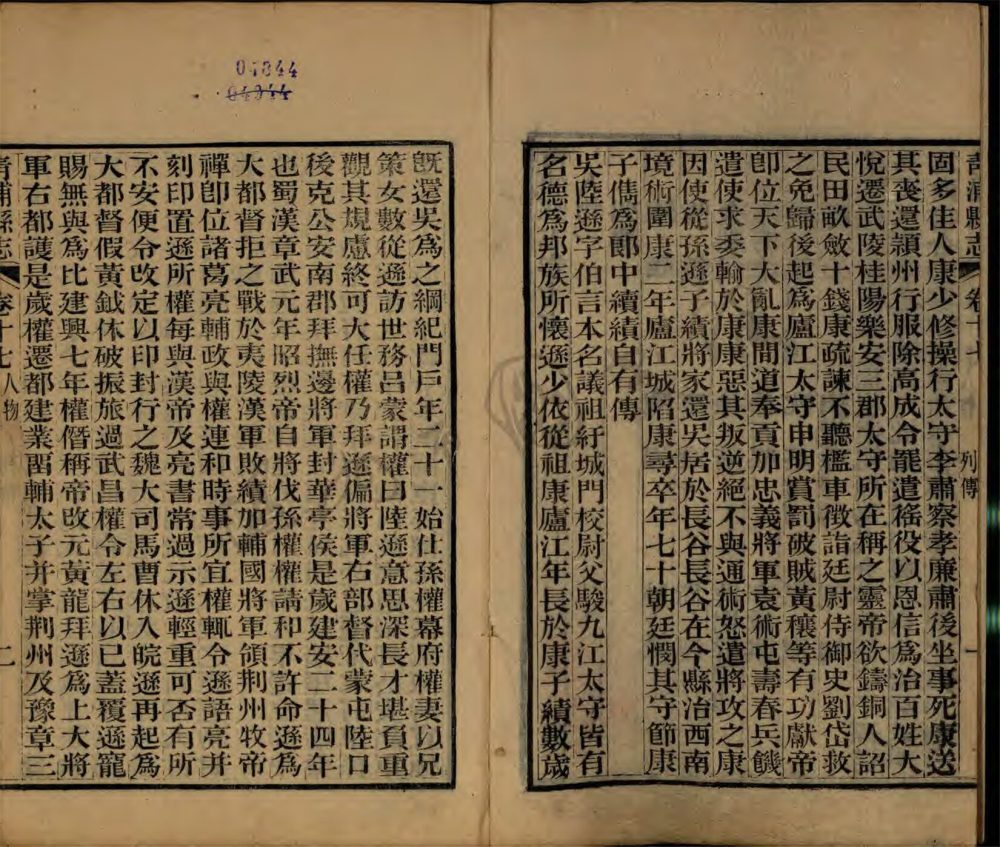 青浦縣志 卷十七 列傳 一
固多佳人康少修操行太守李肅察孝廉肅後坐事死康送
其喪還潁州行服除高成令罷遣徭役以恩信爲治百姓大
悅遷武陵桂陽樂安三郡太守所在稱之靈帝欲鑄銅人詔
民田畝斂十錢康疏諫不聽檻車徵詣廷尉侍御史劉岱救
之免歸後起爲廬江太守申明賞罰破賊黃穰等有功獻帝
卽位天下大亂康間道奉貢加忠義將軍袁術屯壽春兵饑
遣使求委輸於康康惡其叛逆絕不與通術怒遣將攻之康
因使從孫遜子績將家還吳居於長谷長谷在今縣治西南
境術圍康二年廬江城陷康尋卒年七十朝廷憫其守節康
子儁爲郞中續績自有傳
吳陸遜字伯言本名議祖紆城門校尉父駿九江太守皆有
名德爲邦族所懷遜少依從祖康廬江年長於康子績數歲
04844
04944
旣還吳爲之綱紀門戶年二十一始仕孫權幕府權妻以兄
策女數從遜訪世務呂蒙謂權曰陸遜意思深長才堪負重
觀其規慮終可大任權乃拜遜偏將軍右部督代蒙屯陸口
後克公安南郡拜撫邊將軍封華亭侯是歲建安二十四年
也蜀漢章武元年昭烈帝自將伐孫權權請和不許命遜爲
大都督拒之戰於夷陵漢軍敗績加輔國將軍領荆州牧帝
禪卽位諸葛亮輔政與權連和時事所宜權輒令遜語亮并
刻印置遜所權每與漢帝及亮書常過示遜輕重可否有所
不安便令改定以印封行之魏大司馬曹休入皖遜再起爲
大都督假黃鉞休破振旅過武昌權令左右以已蓋覆遜寵
賜無與爲比建興七年權僭稱帝改元黃龍拜遜爲上大將
軍右都護是歲權遷都建業畱輔太子并掌荆州及豫章三
青浦縣志 卷十七 人物 二